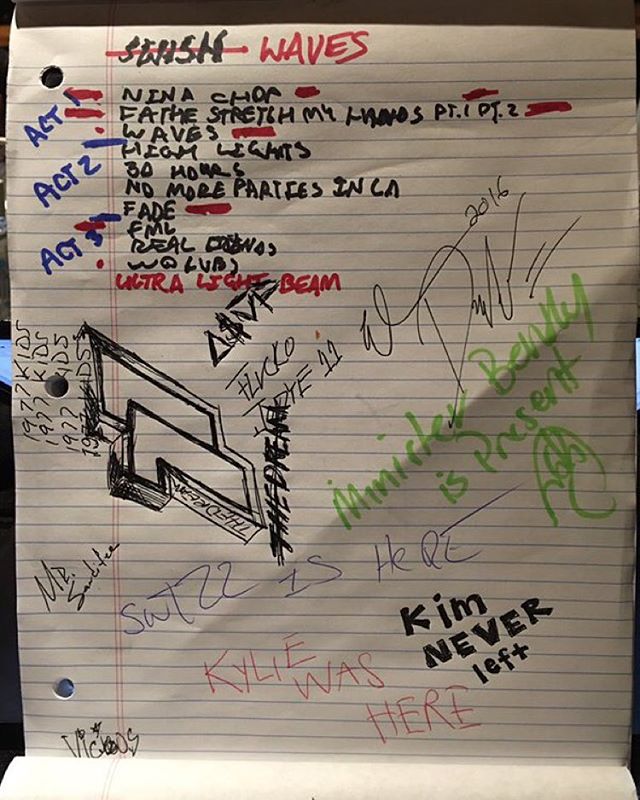 SWISH WAVES
ACT 1
NINA CHOP
FATHE STRETCH MY HANDS PT.1 PT.2
WAVES
ACT 2
HIGH LIGHTS
30 HOURS
NO MORE PARTIES IN LA
FADE
ACT 3
FML
REAL FRIENDS
WOLVES
ULTRA LIGHT BEAM
2016
1977 KIDS
1977 KIDS
1977 KIDS
1977 KIDS
THEDREAM
THEDREAM
Minister Bently
is Present
Swizz IS HERE
Kim
NEVER
left
KYLIE
WAS
HERE
MR.
Vicious